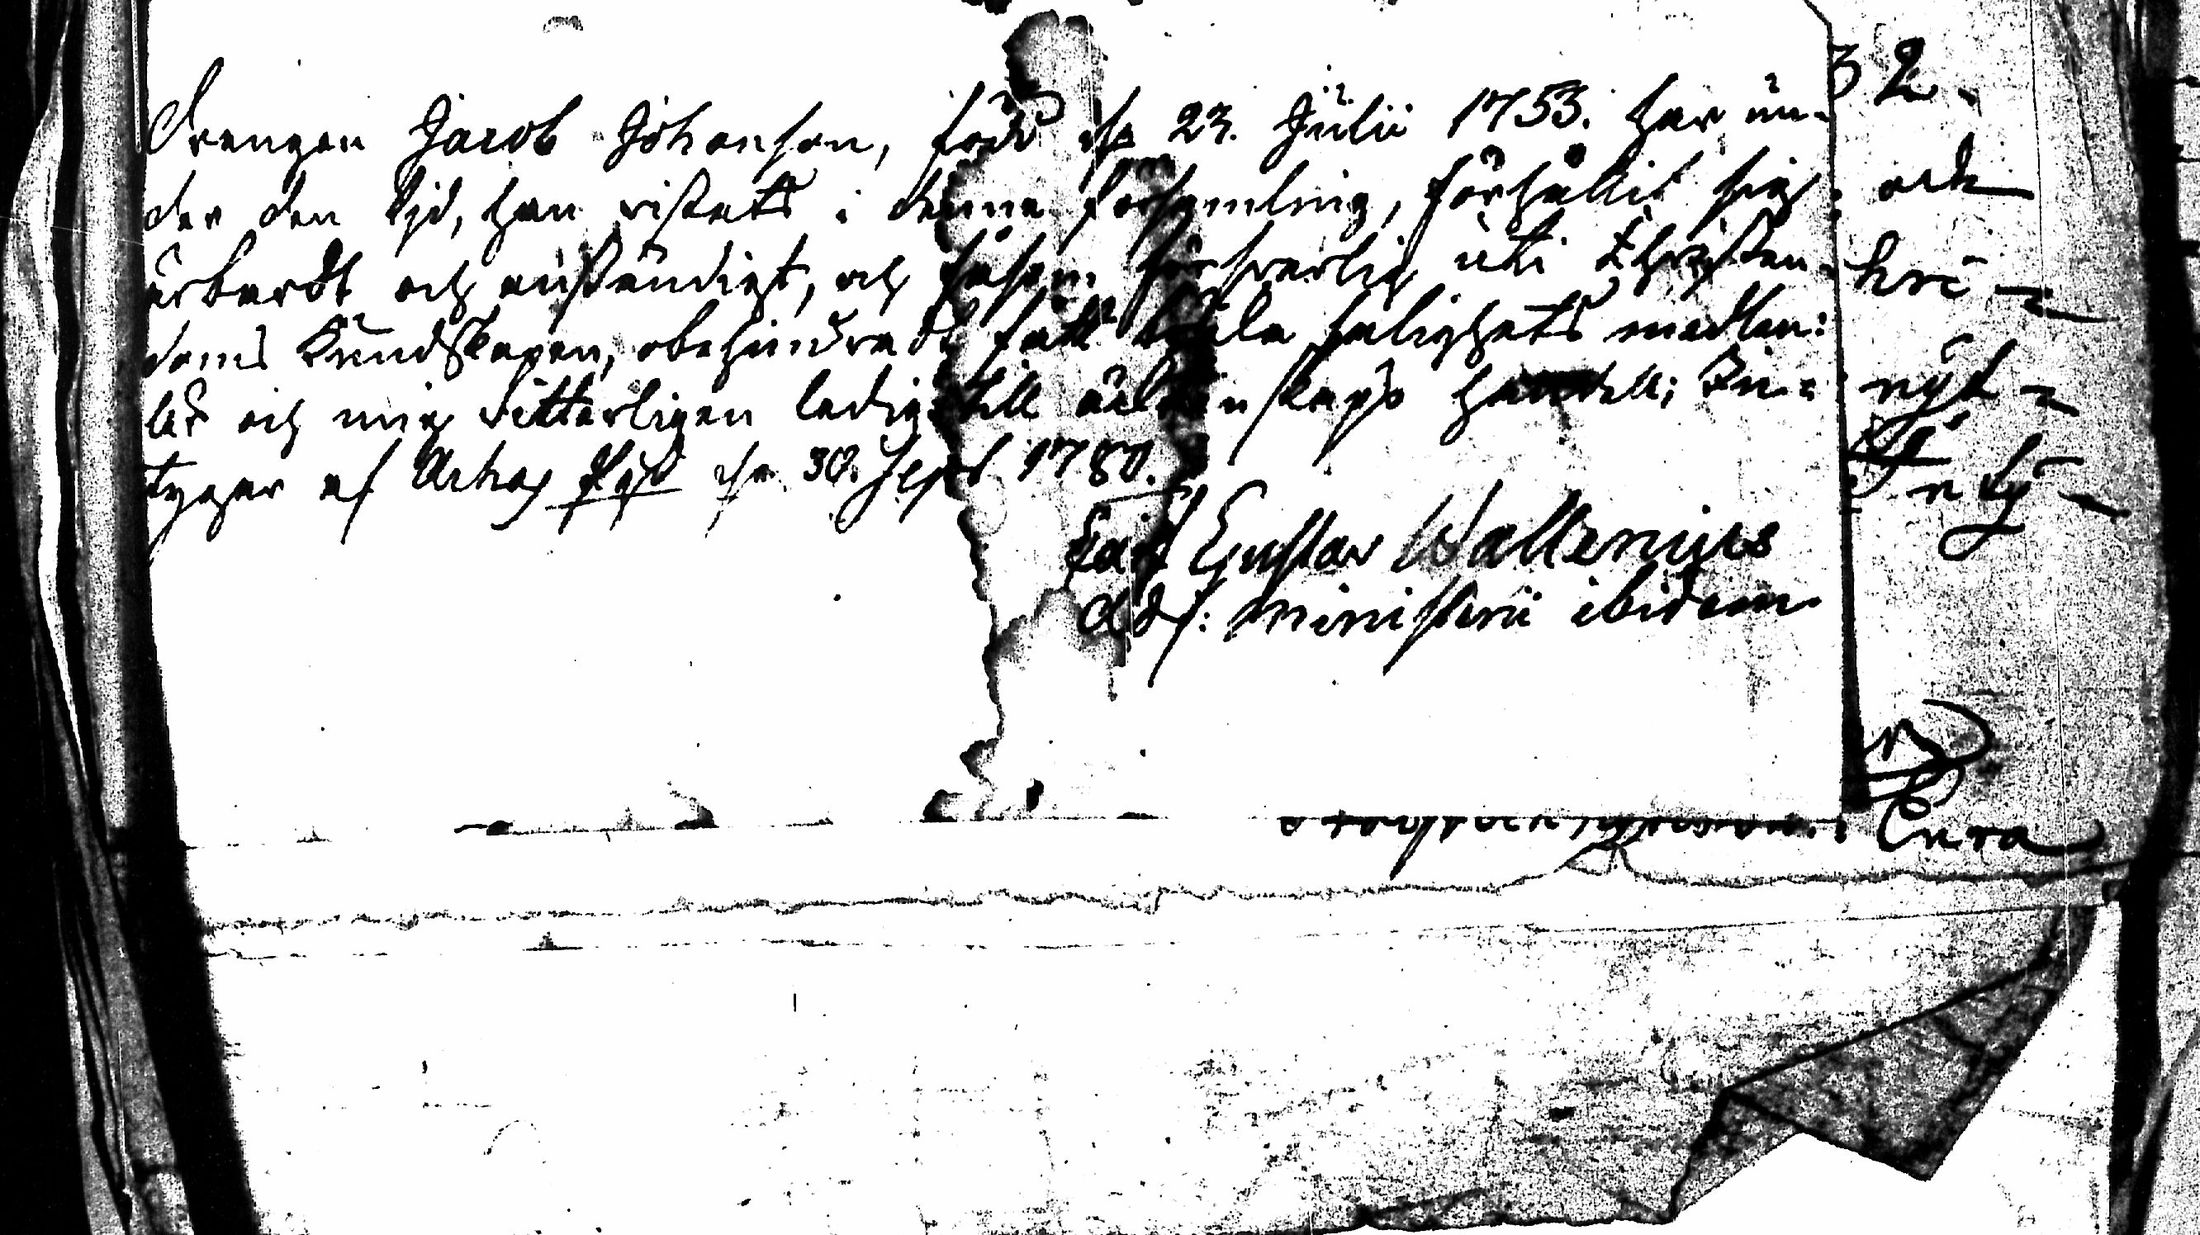 Drengen Jacob Johanson, född d. 23. Julii 1753. har un-
der den tjd, han vistats i denna församling, förhållit sig
ärbardt och anständigt, och såsom försvarlig uti Christen-
doms Kundskapen, obehindradt fått bruka salighets medlen:
är och mig vitterligen ledig till äcktenskaps handell; In-
tygar af d. 30. Sept 1780.
Carl Gustav Wallenius
Adj: Ministerii ibidem
32.
och
hri-
nyt-
n ty-
Cura